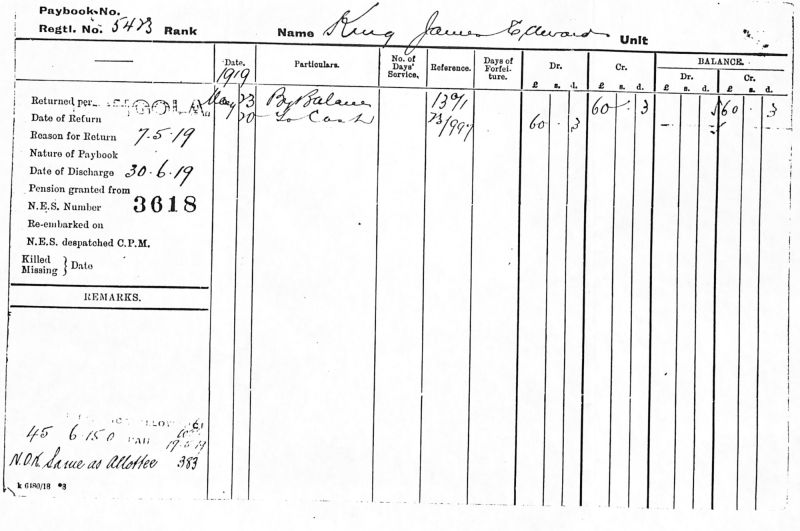 Paybook No.
Regtl. No. 5473 Rank
Name King James Edward Unit
Date. Particulars. No. of Days' Service. Reference. Days of Forfeiture. Dr. Cr. BALANCE.
Dr. Cr.
£ s. d. £ s. d. £ s. d. £ s. d.
1919
Returned per
May 23 By Balance 60 . 3 60 . 3
Date of Return
20 To Cash 73/997 60 . 3
Reason for Return 7.5.19
Nature of Paybook
Date of Discharge 30.6.19
Pension granted from
N.E.S. Number 3618
Re-embarked on
N.E.S. despatched C.P.M.
Killed
Missing } Date
REMARKS.
45 6.15.0
N.O.K Same as Allottee 383
k 6180/18 *3